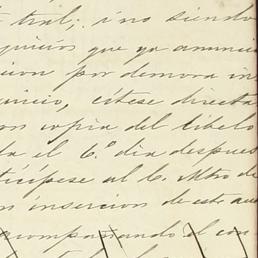 tral; i no siendo
quicios que ya anuncia
cion por demora in
juicio, cítese directa
con copia del libelo
la el 6.º dia despues
tícipese al C. Mtro de
n insercion de este au
acompañando el con